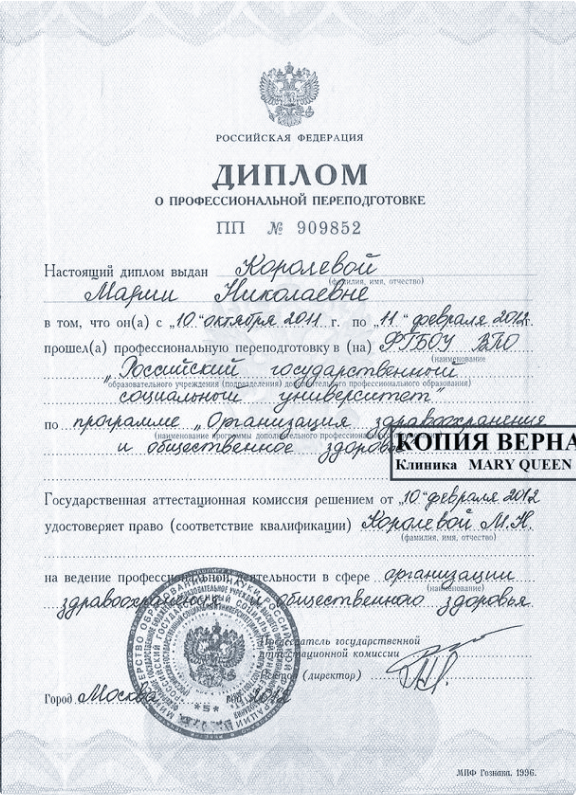 РОССИЙСКАЯ ФЕДЕРАЦИЯ
ДИПЛОМ
О ПРОФЕССИОНАЛЬНОЙ ПЕРЕПОДГОТОВКЕ
ПП № 909852
Настоящий диплом выдан Королевой
(фамилия, имя, отчество)
Марии Николаевне
в том, что он(а) с „10“ октября 2011 г. по „11“ февраля 2012 г.
прошел(а) профессиональную переподготовку в (на) ФГБОУ ВПО
(наименование
„Российский государственный
образовательного учреждения (подразделения) дополнительного профессионального образования)
социальный университет“
по программе „Организация здравоохранения
(наименование программы дополнительного
и общественное
КОПИЯ ВЕРНА
Клиника MARY QUEEN
Государственная аттестационная комиссия решением от „10“ февраля 2012
удостоверяет право (соответствие квалификации) Королевой М.Н.
(фамилия, имя, отчество)
на ведение профессиональной деятельности в сфере организации
(наименование)
здравоохранения и общественного здоровья
Председатель государственной
аттестационной комиссии
Ректор (директор)
Город Москва 2012
МПФ Гознака. 1996.